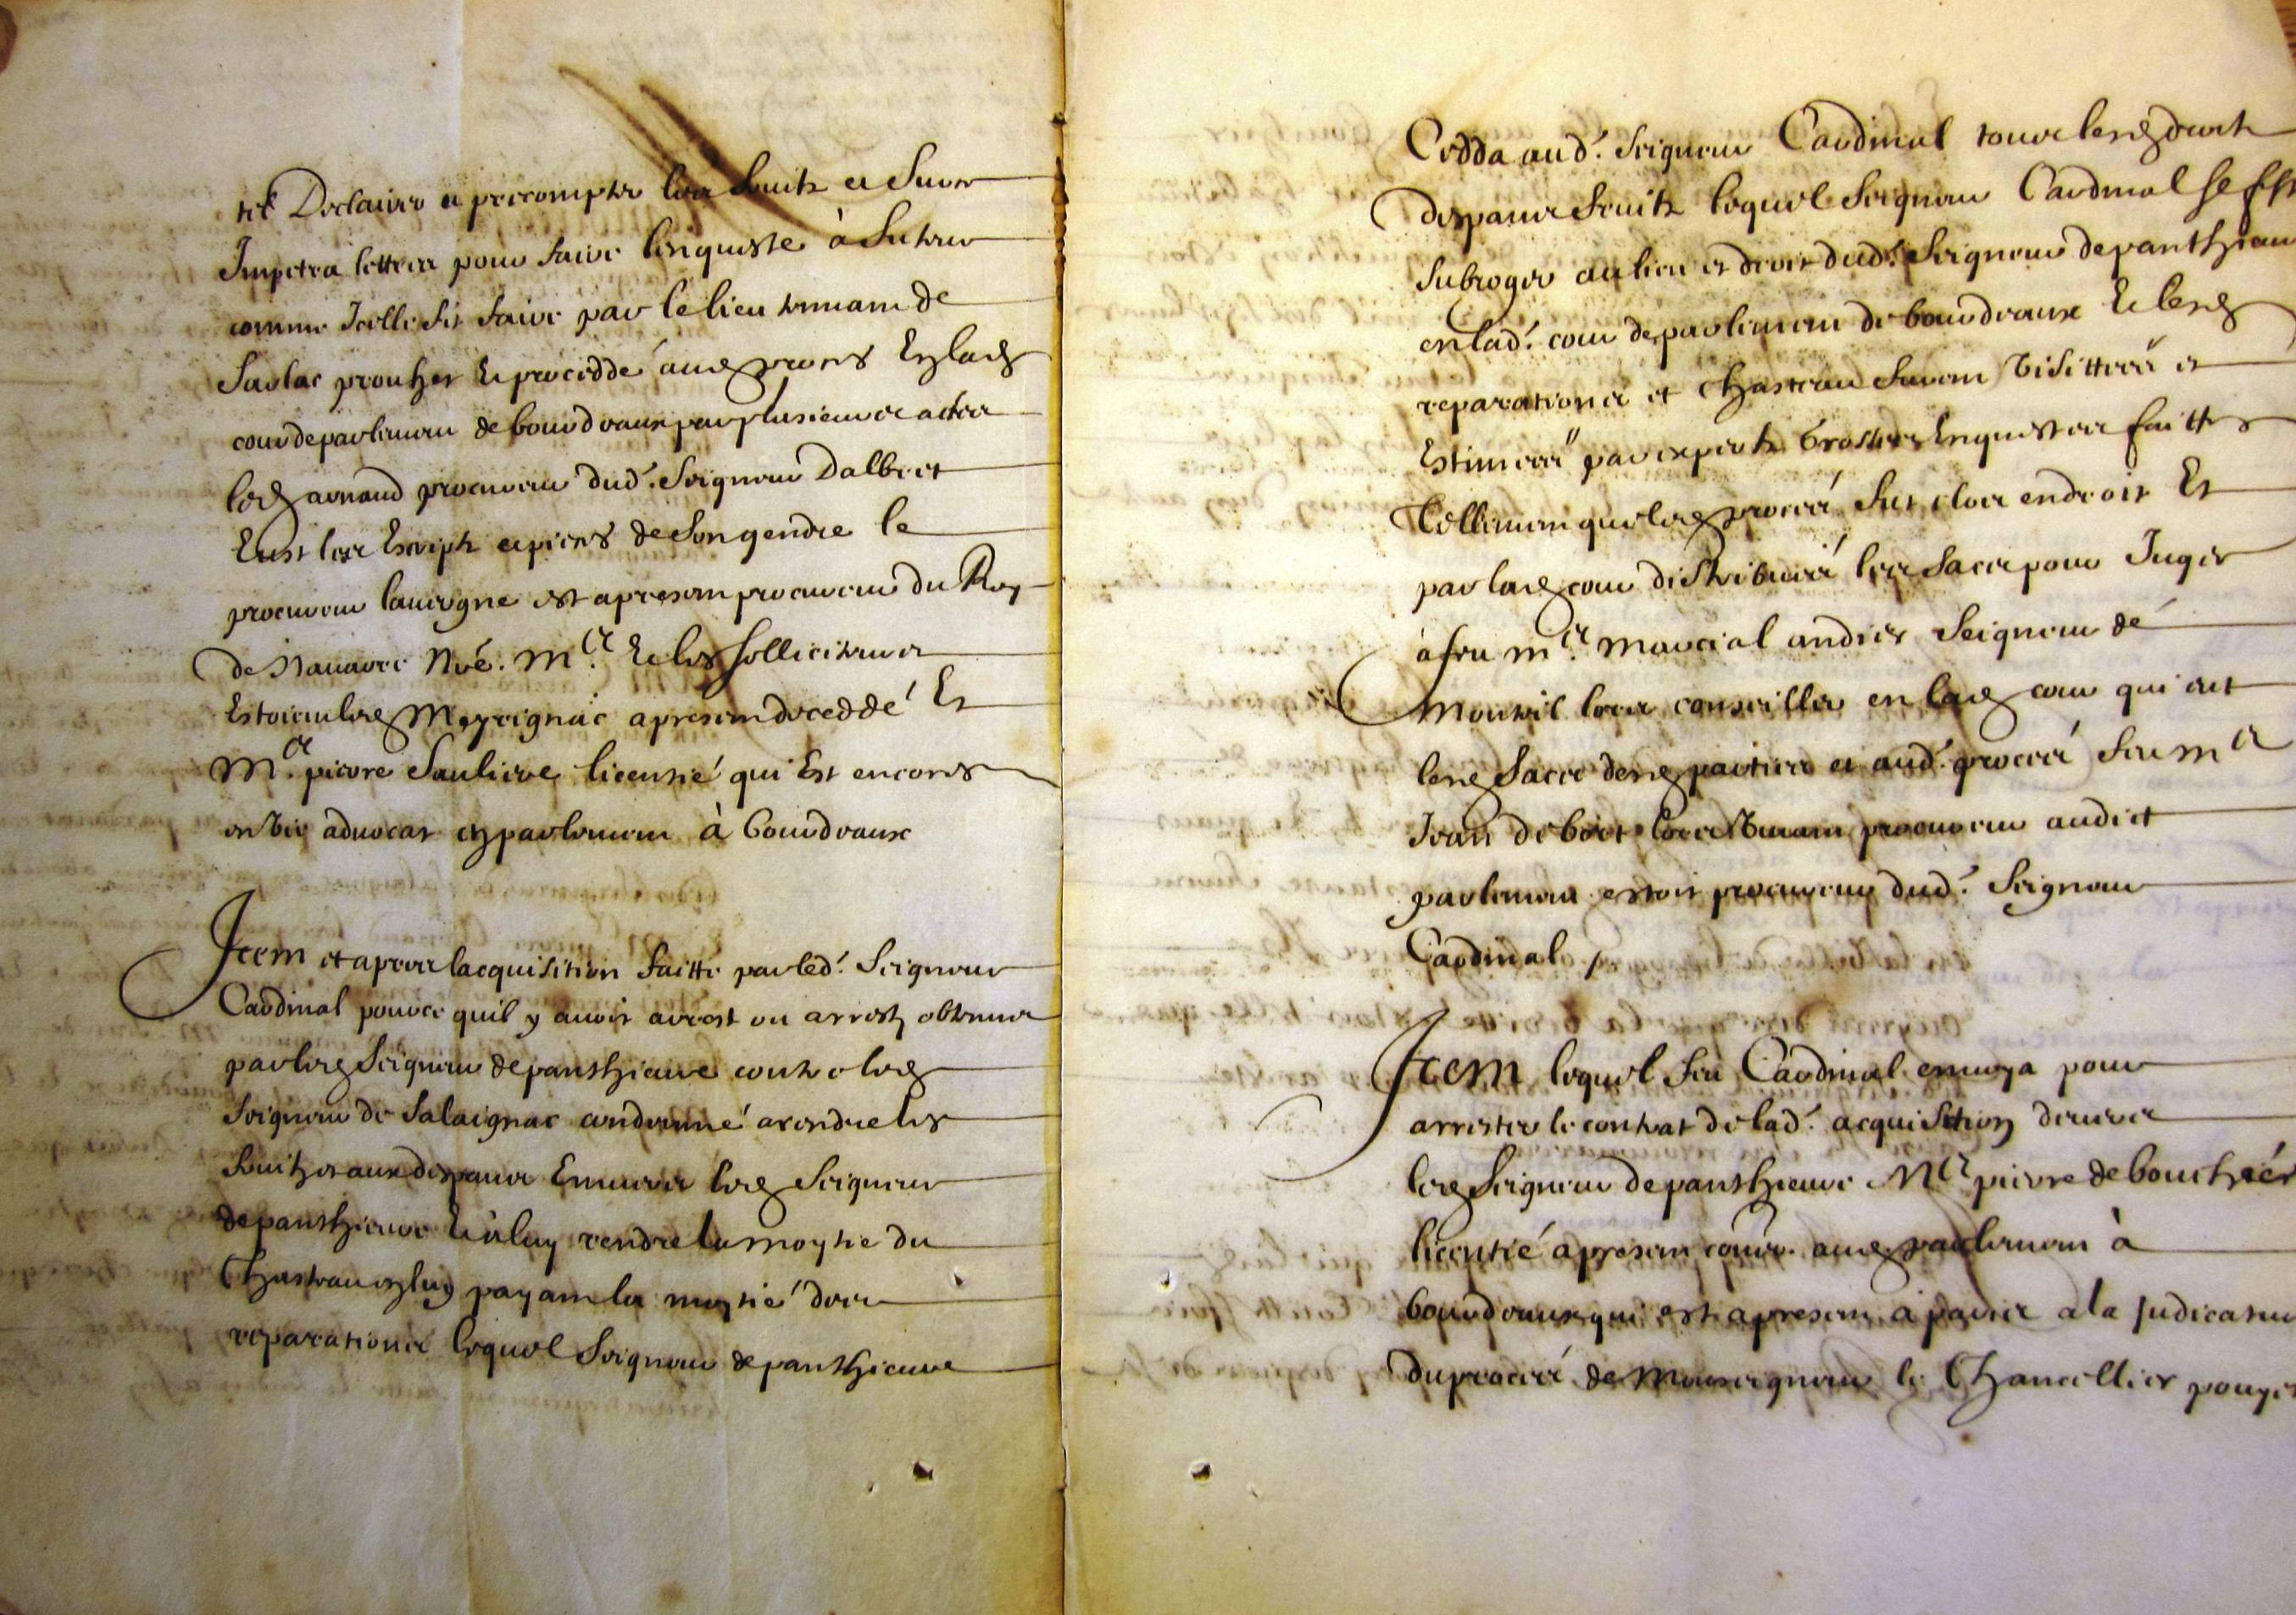 tel Declairer a precompter les fruitz et furent
Impetra lettres pour faire lenqueste à
comme Icelle fit faire par le lieutenant de
Sarlac prouher Et procedde aud proces En lad
cour de parlement de bourdeaux par plusieurs actes
led arnaud procureur dud. Seigneur Dalbret
Eust les Escriptz et pieces de son gendre le
procureur lauvergne est apresent procureur du Roy
de Navarre Me. Et les solliciteurs
Estoient led Meyrignac apresent decedde Et
Me. pierre Sauliere licentié qui Est encores
en vie advocat en parlement à bourdeaux
Item et apres lacquisition faitte par led. Seigneur
Cardinal pource quil y avoit arrest ou arrestz obtenus
par led Seigneur de panthieuve contre led
Seigneur de Salaignac condemné a rendre les
fruitz et aux despans Envers led Seigneur
de panthieuve Et à luy rendre la moytie du
Chasteau en luy payant la moytié des
reparations lequel Seigneur de panthieuve
Cedda aud. Seigneur Cardinal tous lesd droitz
despans fruitz lequel Seigneur Cardinal se fist
subroger au lieu et droit dud. Seigneur de panthieuve
en lad. cour de parlement de bourdeaux Et lesd
reparations et Chasteau furent visittés et
Estimees par expertz Enquestes faittes
Tellement que led proces fut clos en droit Et
par lad cour distribués les sacs pour Juger
à feu me. marcial andier Seigneur de
lors conseiller en lad cour qui eut
lesd sacs desd parties et aud. proces feu me
Jean de bort lors vivant procureur audict
parlement estoit procureur dud. Seigneur
Cardinal /
Item lequel feu Cardinal envoya pour
arrester le contrat de lad. acquisition devers
led Seigneur de panthieuve Me pierre de bouchier
licentié apresent aud parlement à
bourdeaux qui est apresent a paris a la Judicature
du proces de Monseigneur le Chancellier